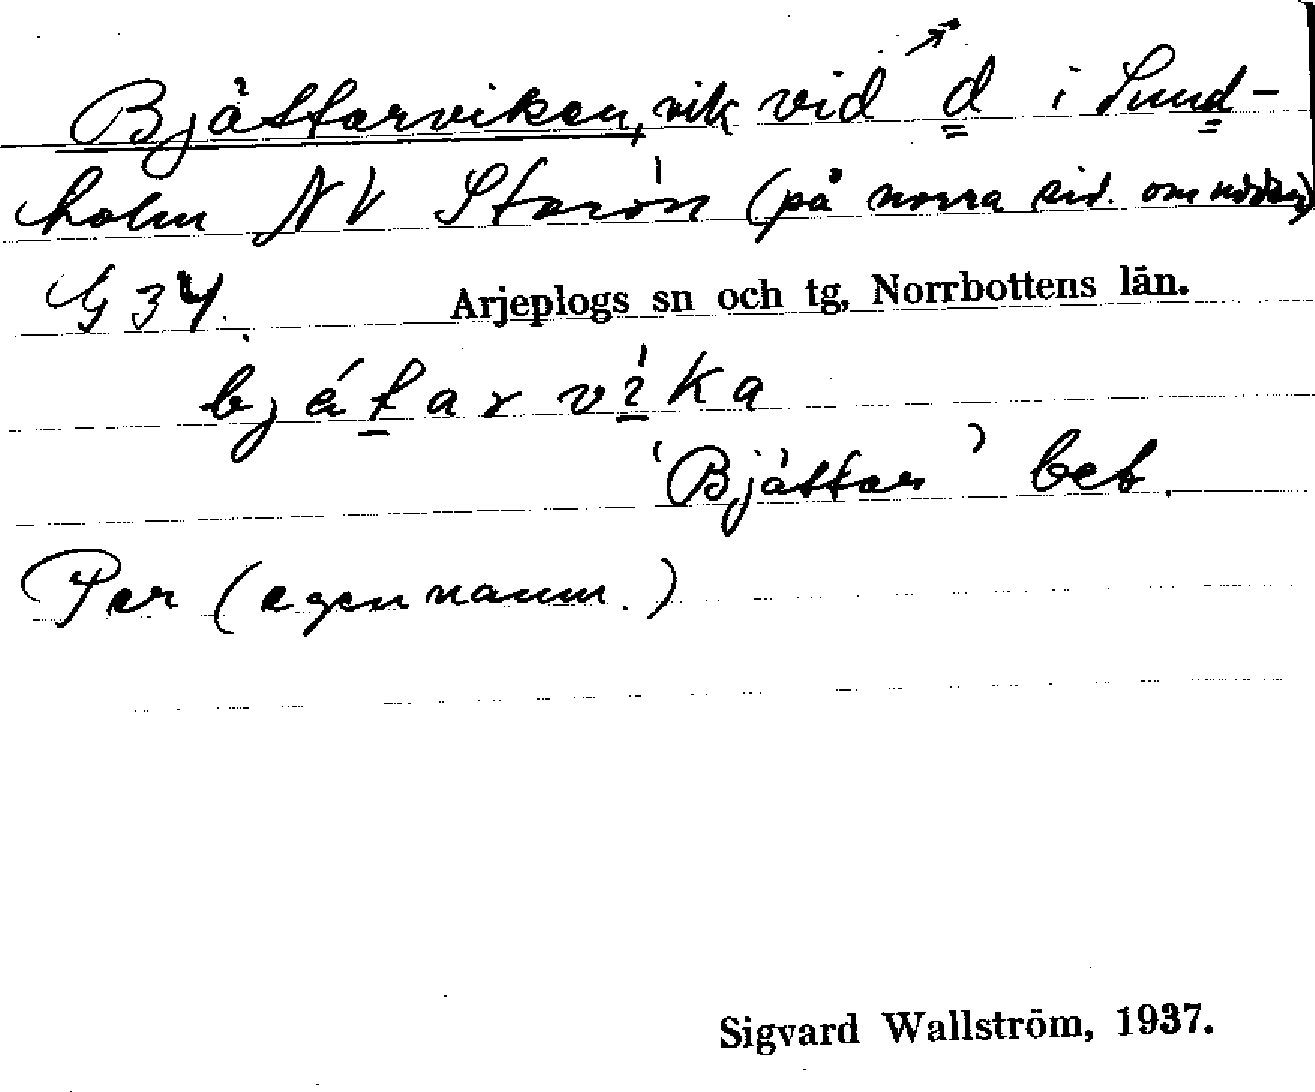 Bjåttarviken, vik vid d i Sund-
holm NV Storön (på norra sid. om udden)
G 34. Arjeplogs sn och tg, Norrbottens län.
bjátar vika
'Bjåttar' bet.
Per (egennamn.)
Sigvard Wallström, 1937.